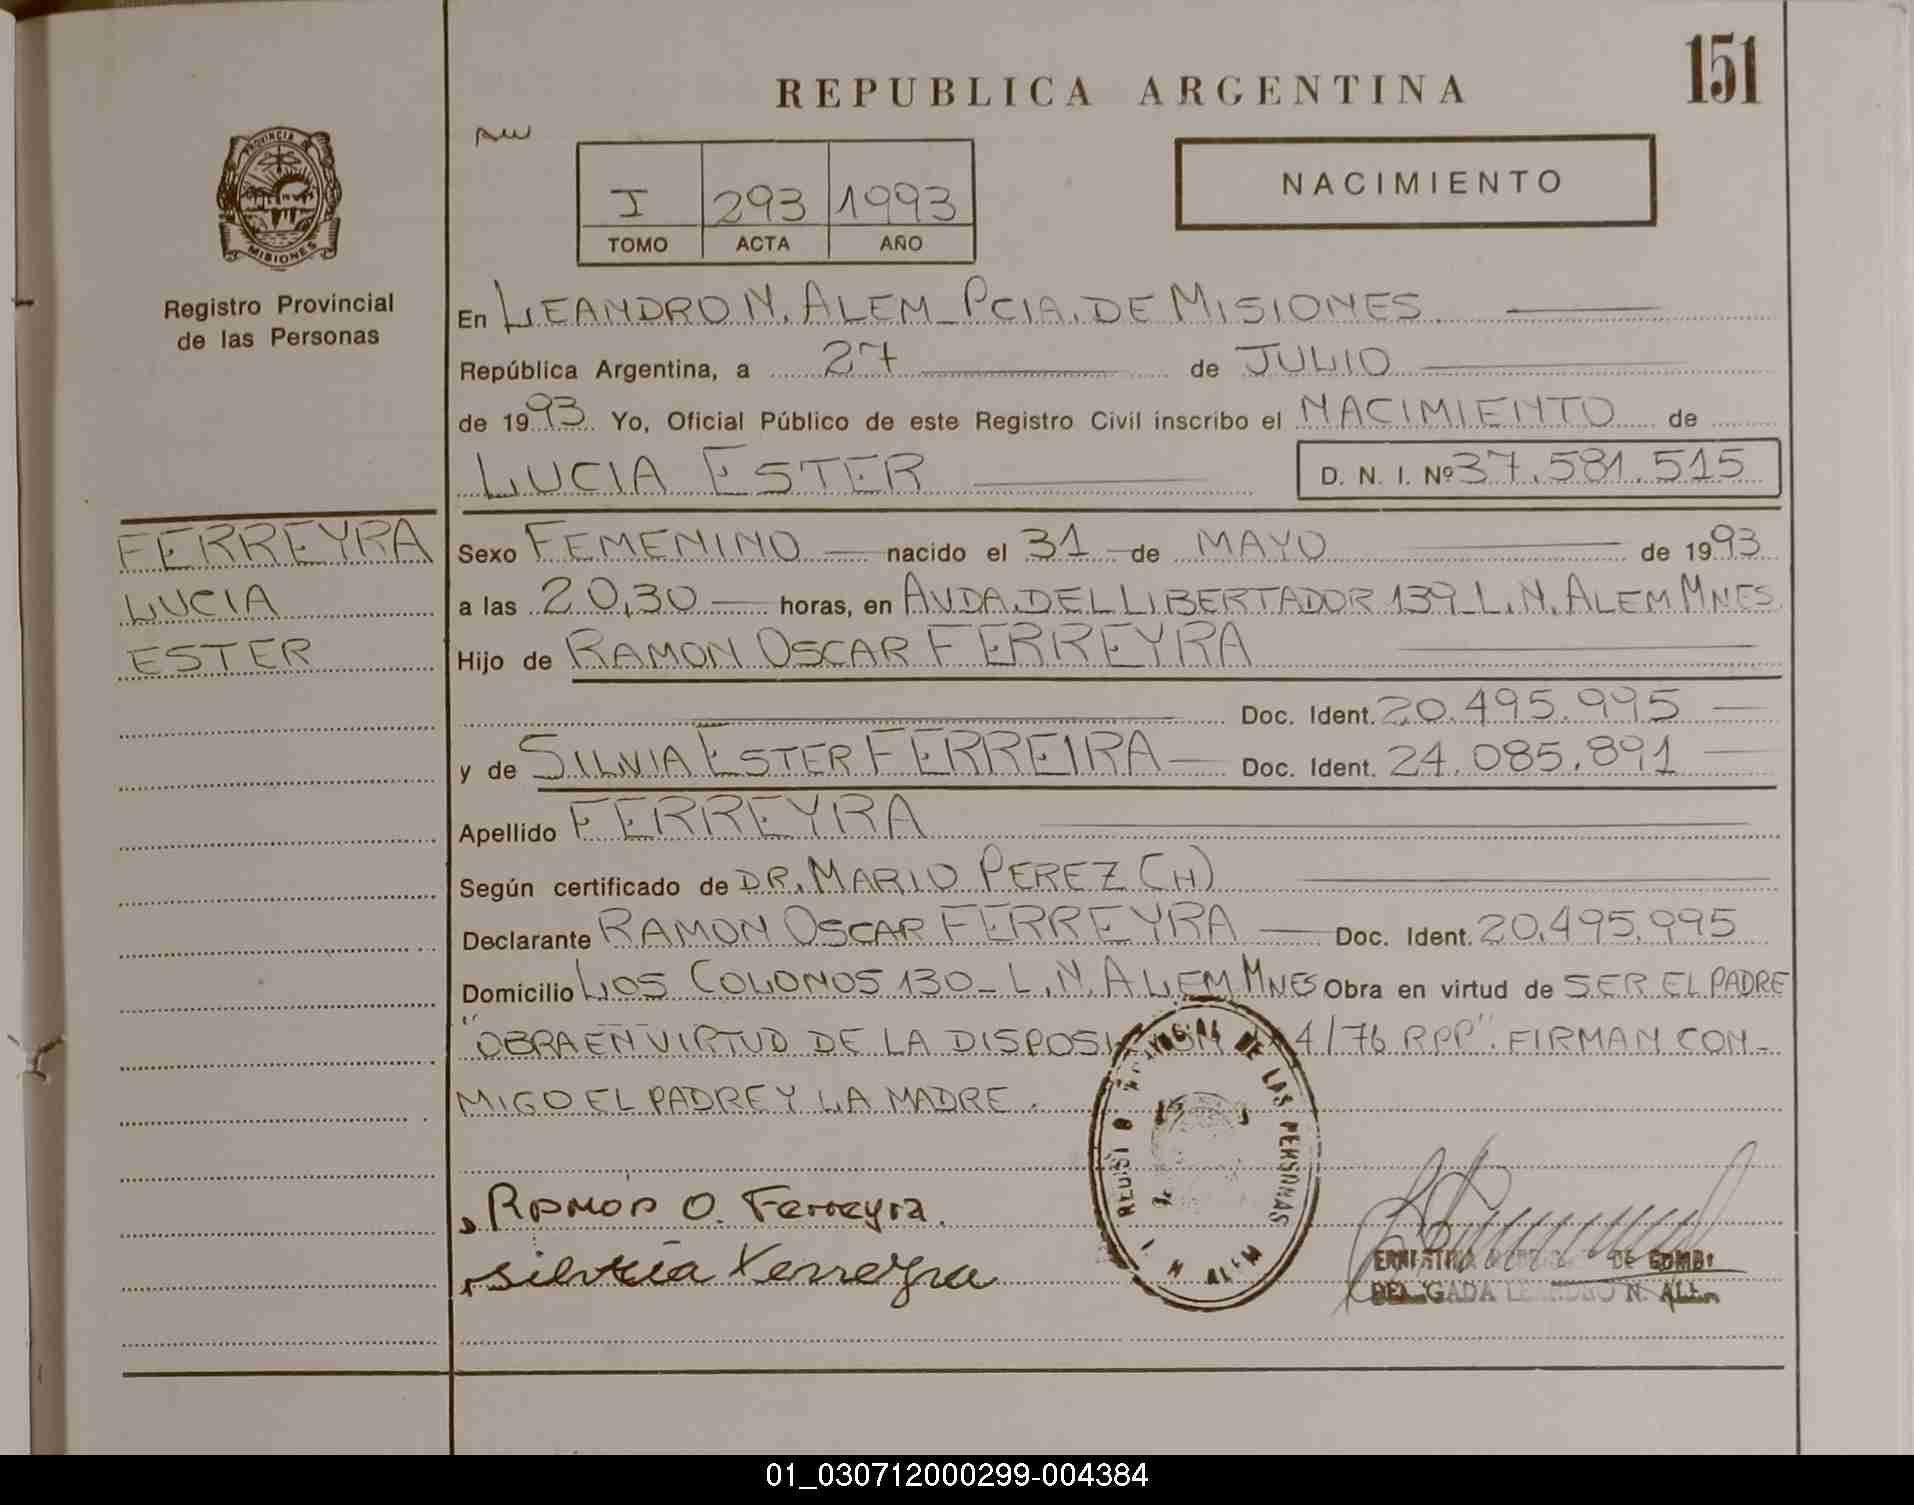 REPUBLICA ARGENTINA
151
PROVINCIA
MISIONES
Registro Provincial
de las Personas
I 293 1993
TOMO ACTA AÑO
NACIMIENTO
En LEANDRO N. ALEM_PCIA. DE MISIONES
República Argentina, a 27 de JULIO
de 1993 Yo, Oficial Público de este Registro Civil inscribo el NACIMIENTO de
LUCIA ESTER D. N. I. Nº 37.581.515
FERREYRA
LUCIA
ESTER
Sexo FEMENINO nacido el 31 de MAYO de 1993
a las 20,30 horas, en AVDA. DEL LIBERTADOR 139_L.N. ALEM MNES
Hijo de RAMON OSCAR FERREYRA
Doc. Ident. 20.495.995
y de SILVIA ESTER FERREIRA Doc. Ident. 24.085.891
Apellido FERREYRA
Según certificado de DR. MARIO PEREZ (H)
Declarante RAMON OSCAR FERREYRA Doc. Ident. 20.495.995
Domicilio LOS COLONOS 130_L.N. ALEM MNES Obra en virtud de SER EL PADRE
"OBRA EN VIRTUD DE LA 4/76 RPP". FIRMAN CON-
MIGO EL PADRE Y LA MADRE.
DE LAS PERSONAS
N. ALEM
Ramón O. Ferreyra.
silvia Ferreyra
DE
N.
01_030712000299-004384